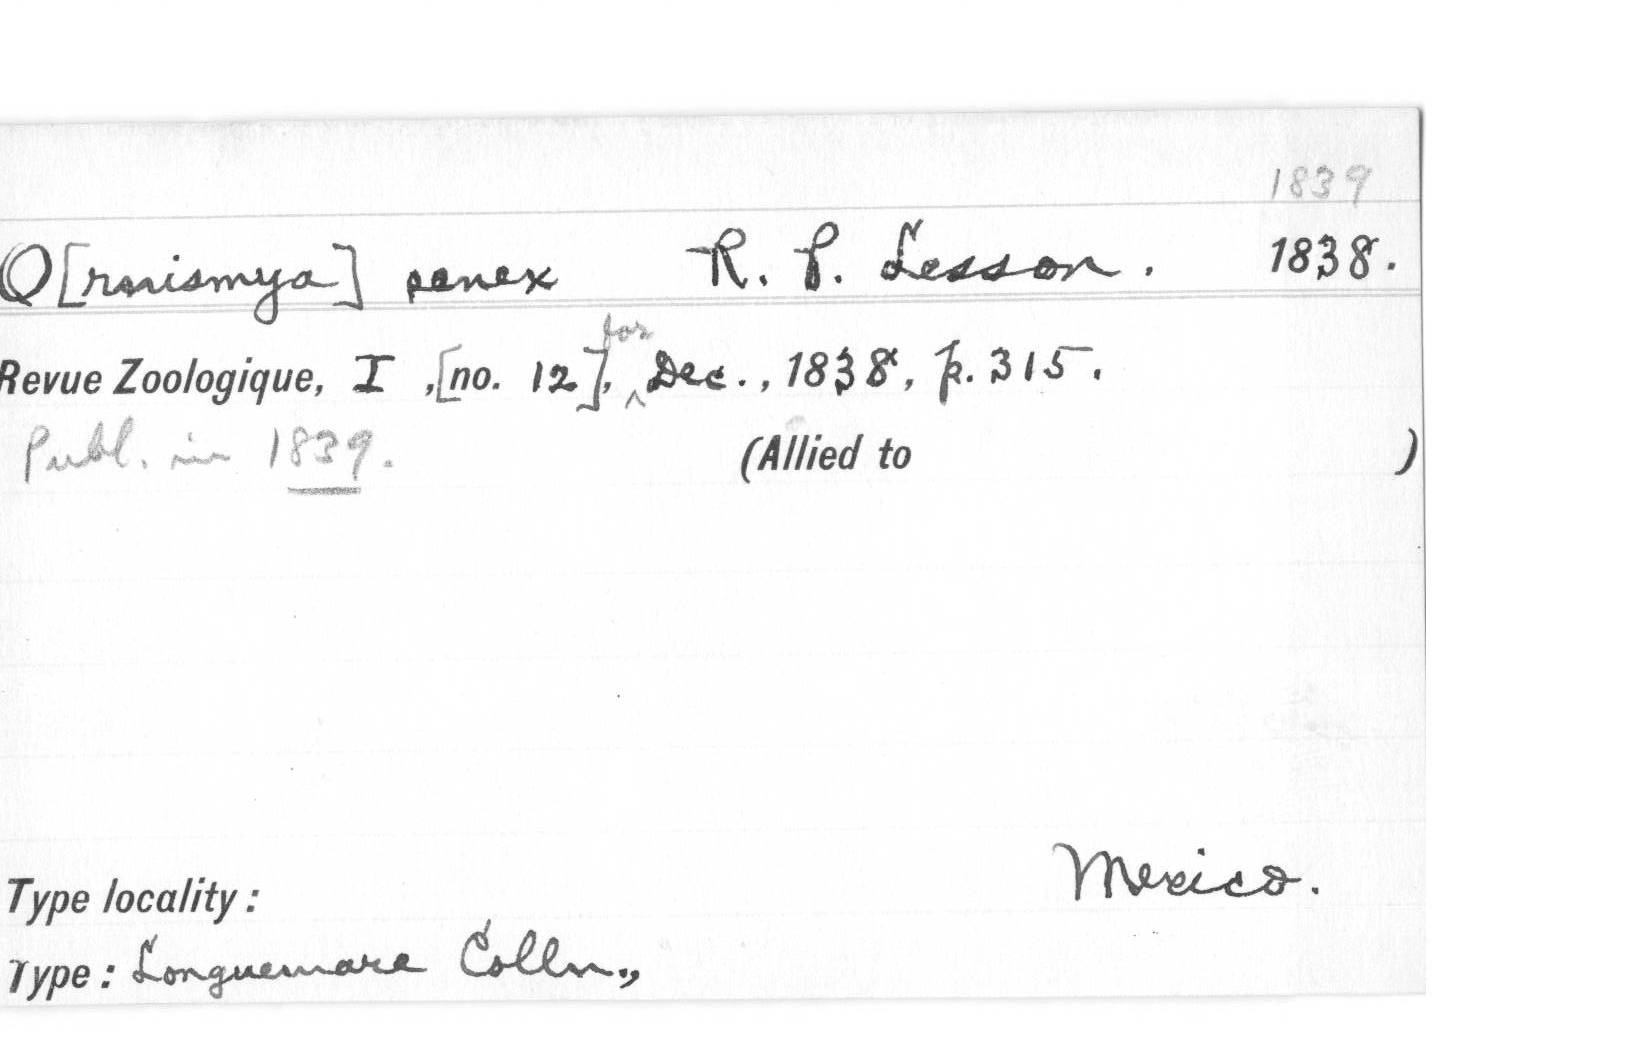 1839
O[rnismya] senex R. P. Lesson. 1838.
for
Revue Zoologique, I ,[no. 12], ^ Dec., 1838, p. 315.
Publ. in 1839. (Allied to )
Type locality: Mexico.
Type: Longuemare Colln.,